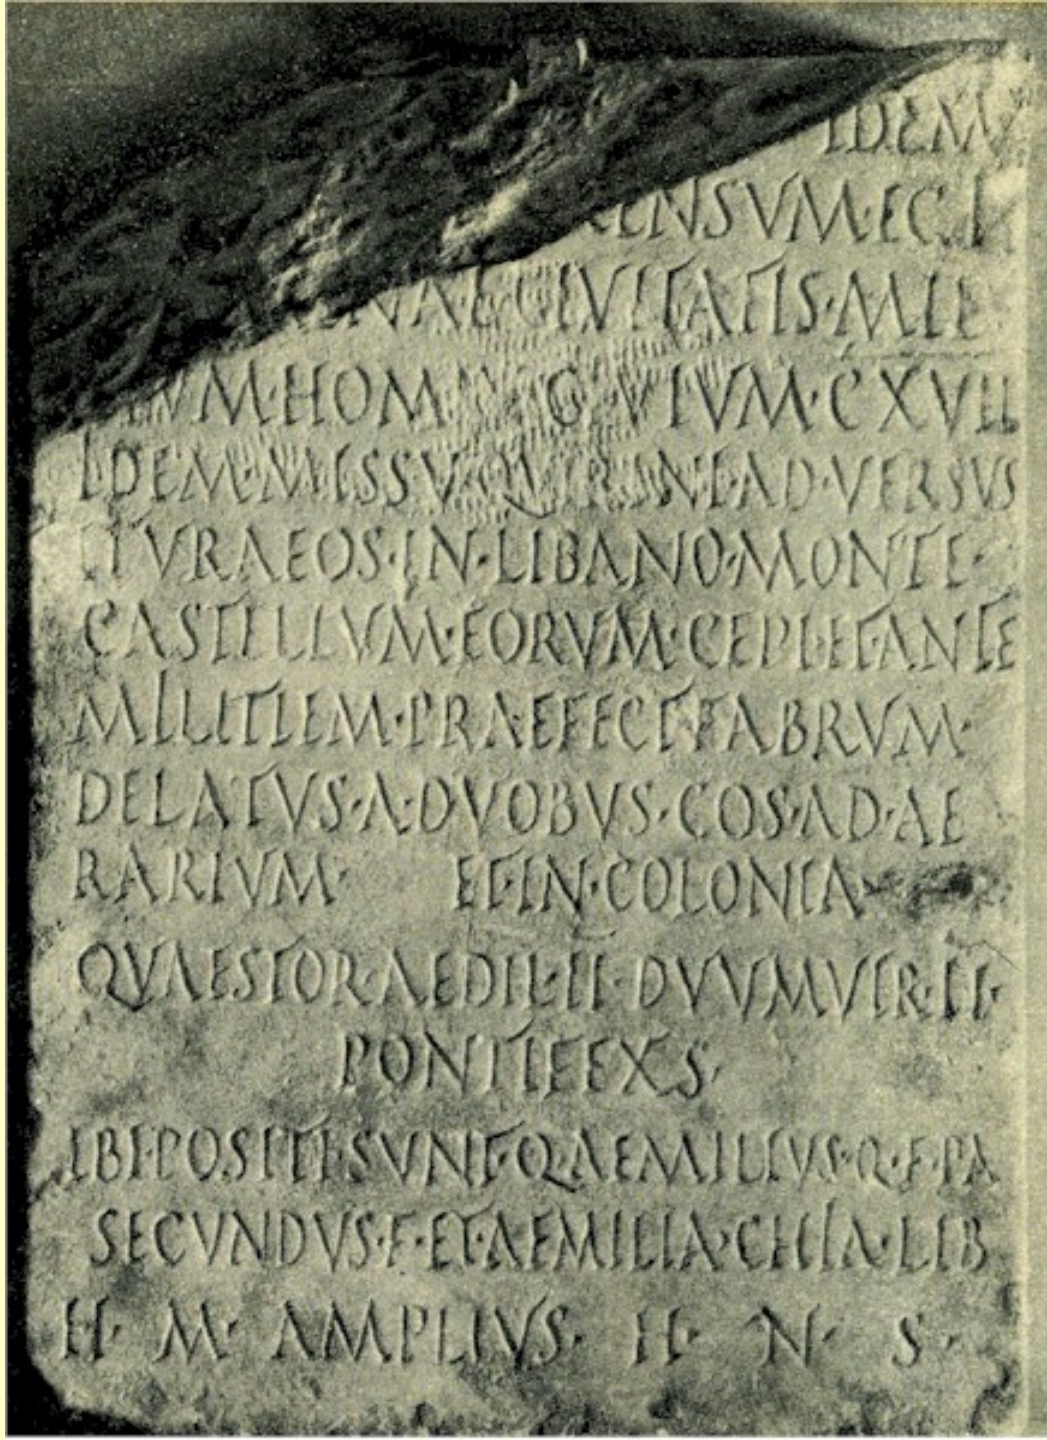 IDEM
CENSVM·EGI
CIVITATIS·MIL
HOM CIVIVM·CXVII
IDEM·MISSV·QVIRINI·ADVERSVS
ITVRAEOS·IN·LIBANO·MONTE·
CASTELLVM·EORVM·CEPI·ET·ANTE
MILITIEM·PRAEFECT·FABRVM·
DELATVS·A·DVOBVS·COS·AD·AE
RARIVM· ET·IN·COLONIA
QVAESTOR·AEDIL·II·DVVMVIR·II·
PONTIFEXS
IBI·POSITI·SVNT·Q·AEMILIVS·Q·F·PA
SECVNDVS·F·ET·AEMILIA·CHIA·LIB
H· M· AMPLIVS· H· N· S·